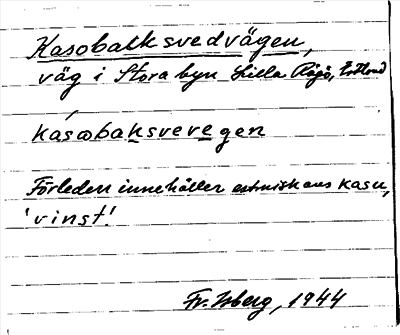 Kasobacksvedvägen,
väg i Stora byn Lilla Rågö, Estland
kasωbaksvevegen
Förleden innehåller estniskans kasu,
'vinst'.
Fr. Isberg, 1944